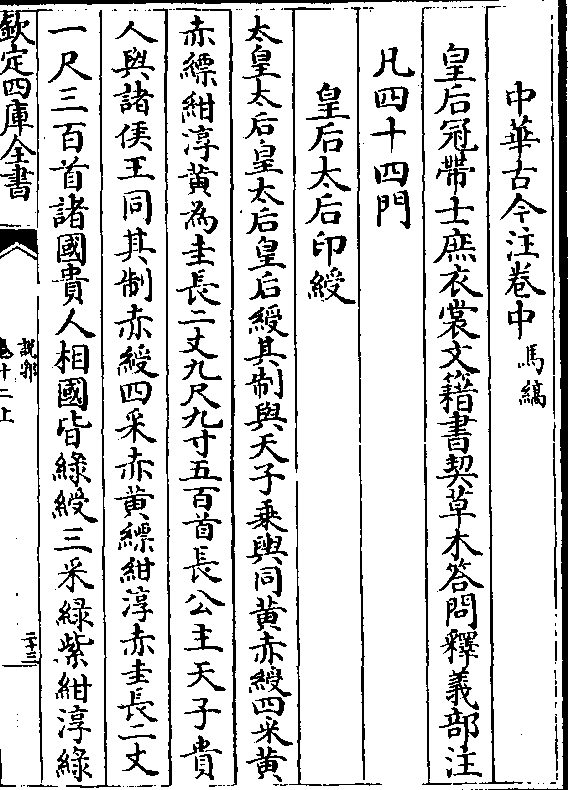 中華古今注卷中 馬縞
皇后冠帶士庶衣裳文籍書契草木答問釋義部注
凡四十四門
皇后太后印綬
太皇太后皇太后皇后綬其制與天子乘輿同黄赤綬四采黄
赤縹紺淳黄為圭長二丈九尺九寸五百首長公主天子貴
人與諸侯王同其制赤綬四采赤黄縹紺淳赤圭長二丈
一尺三百首諸國貴人相國皆緑綬三采緑紫紺淳緑
欽定四庫全書
説郛
卷十二上
二十三